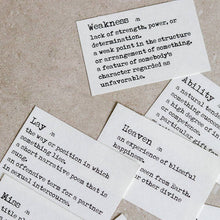 Weakness /n
lack of strength, power, or
determination.
a weak point in the structure
or arrangement of something.
a feature of somebody's
character regarded as
unfavorable.
Ability
a natural tende
Lay /n
the way or position in which
something lies.
a short narrative poem that is
an offensive term for a partner
in sexual intercourse.
Heaven /n
an experience of blissful
happiness.
seen from Earth.
other divine
Miss /n
title